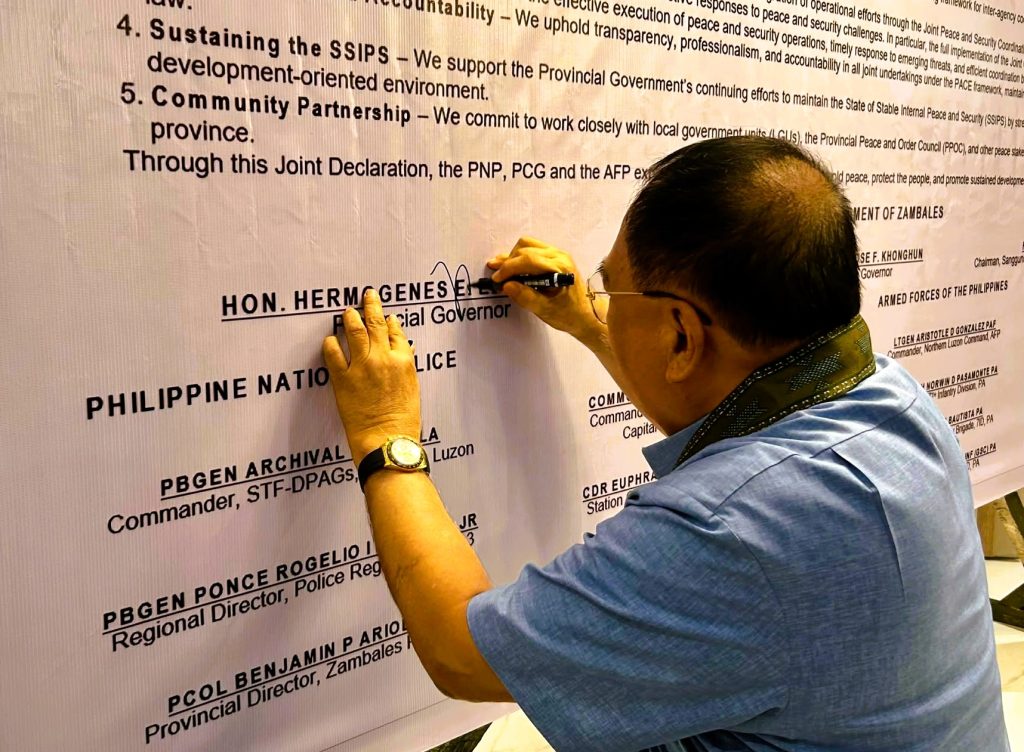 law.
Accountability – We uphold transparency, professionalism, and accountability in all joint undertakings under the PACE framework, maintain
effective execution of peace and security operations, timely response to emerging threats, and efficient coordination
responses to peace and security challenges. In particular, the full implementation of the Joint
of operational efforts through the Joint Peace and Security Coordinat
framework for inter-agency co
4. Sustaining the SSIPS – We support the Provincial Government's continuing efforts to maintain the State of Stable Internal Peace and Security (SSIPS) by stre
development-oriented environment.
5. Community Partnership – We commit to work closely with local government units (LGUs), the Provincial Peace and Order Council (PPOC), and other peace stake
province.
Through this Joint Declaration, the PNP, PCG and the AFP ex
peace, protect the people, and promote sustained developme
MENT OF ZAMBALES
HON. HERMOGENES E.
Provincial Governor
OSE F. KHONGHUN
Governor
Chairman, Sanggun
PHILIPPINE NATIO LICE
ARMED FORCES OF THE PHILIPPINES
PBGEN ARCHIVAL LA
Commander, STF-DPAGs, Luzon
COMM
Command
Capital
LTGEN ARISTOTLE D GONZALEZ PAF
Commander, Northern Luzon Command, AFP
NORWIN D PASAMONTE PA
Infantry Division, PA
PBGEN PONCE ROGELIO I JR
Regional Director, Police Reg 3
CDR EUPHRA
Station
BAUTISTA PA
Brigade, 7ID, PA
INF (GSC) PA
PA
PCOL BENJAMIN P ARIO
Provincial Director, Zambales